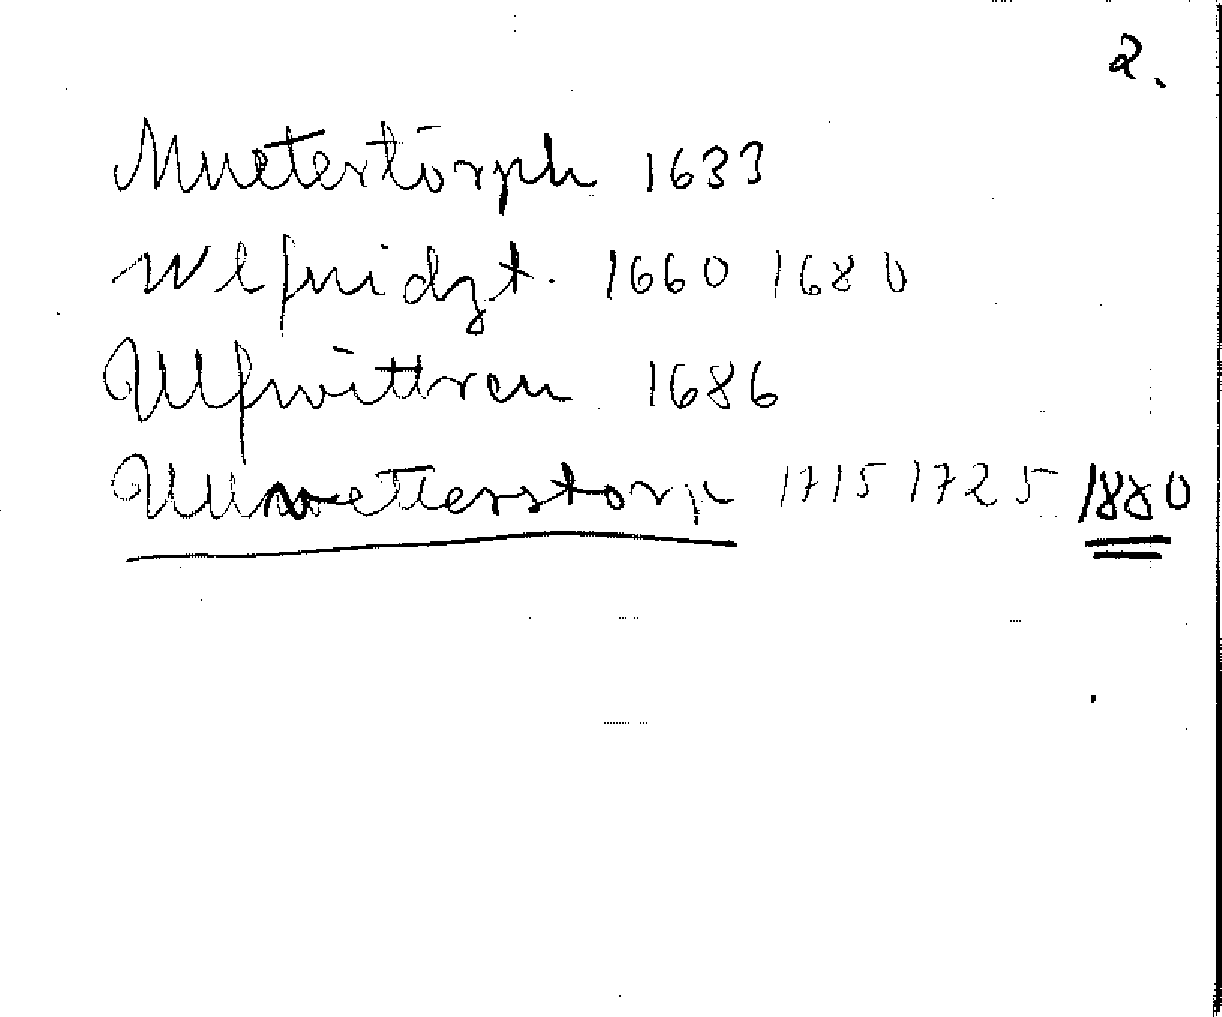 2.
Muetertörph 1633
Wlfridzt. 1660 1680
Ulfwittren 1686
Ullvettersstorp 1715 1725 1880